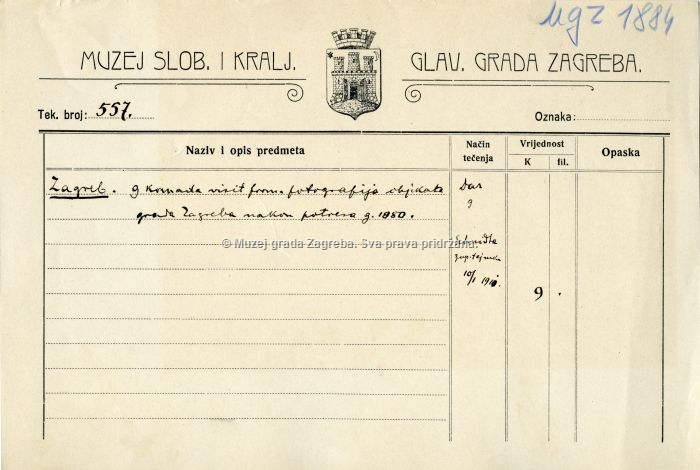 MGZ 1884
MUZEJ SLOB. I KRALJ. GLAV. GRADA ZAGREBA.
Tek. broj: 557. Oznaka:
Naziv i opis predmeta
Način tečenja
Vrijednost
K fil.
Opaska
Zagreb. 9 komada visit form. fotografija objekata
grada Zagreba nakon potresa g. 1880.
Dar
g
10/I 1910.
9 .
© Muzej grada Zagreba. Sva prava pridržana.